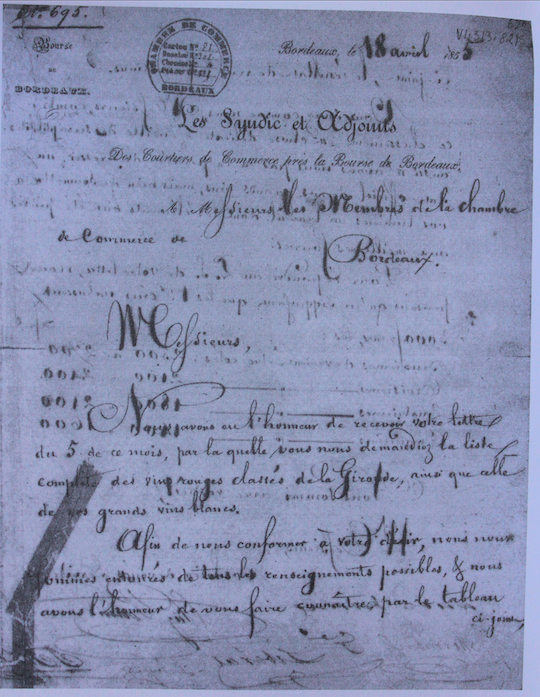 N.º 695.
Bourse
DE
BORDEAUX.
CHAMBRE DE COMMERCE
BORDEAUX
Bordeaux, le 18 avril 1855
Les Syndic et Adjoints
Des Courtiers de Commerce près la Bourse de Bordeaux,
A Messieurs les Membres de la chambre
de Commerce de
Bordeaux.
Messieurs,
Nous avons eu l'honneur de recevoir votre lettre
du 5 de ce mois, par la quelle vous nous demandiez la liste
complète des vins rouges classés de la Gironde, ainsi que celle
de nos grands vins blancs.
Afin de nous conformer à votre désir, nous nous
sommes entourés de tous les renseignements possibles, & nous
avons l'honneur de vous faire connaître, par le tableau
ci-joint,